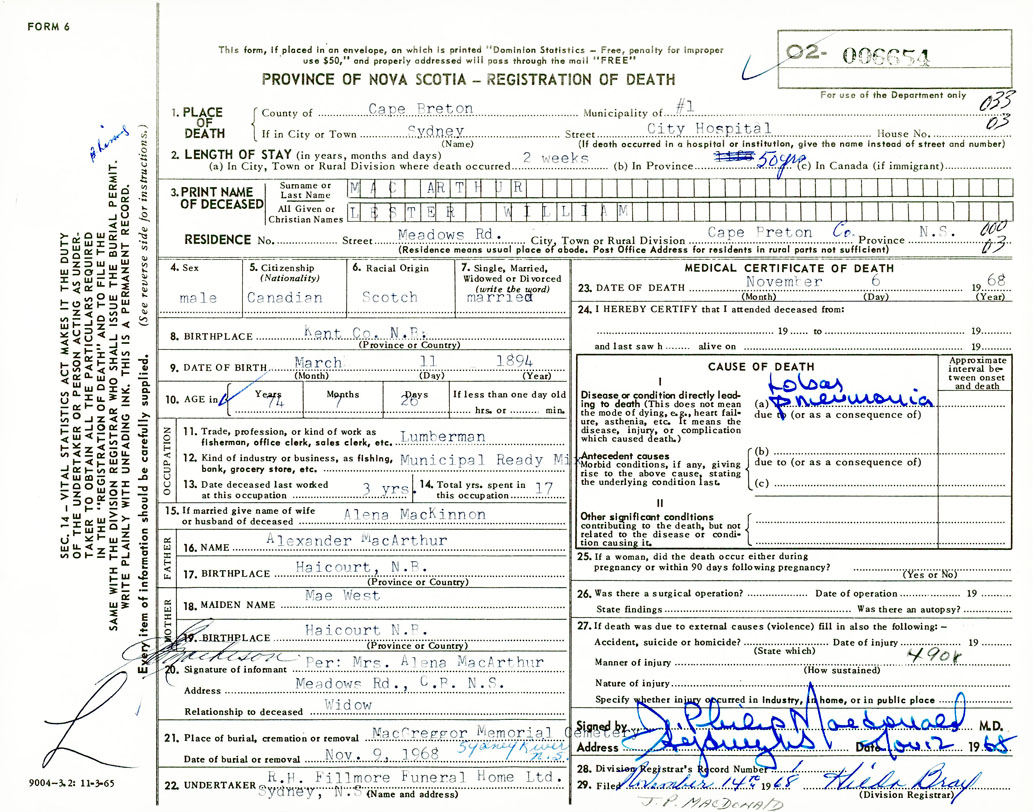 FORM 6
This form, if placed in an envelope, on which is printed "Dominion Statistics – Free, penalty for improper
use $50," and properly addressed will pass through the mail "FREE"
PROVINCE OF NOVA SCOTIA – REGISTRATION OF DEATH
02- 006654
For use of the Department only
033
03
1. PLACE OF DEATH
County of Cape Breton Municipality of #1
If in City or Town Sydney Street City Hospital House No.
(Name) (If death occurred in a hospital or institution, give the name instead of street and number)
2. LENGTH OF STAY (in years, months and days)
(a) In City, Town or Rural Division where death occurred 2 weeks (b) In Province 50 yrs (c) In Canada (if immigrant)
3. PRINT NAME OF DECEASED
Surname or Last Name MAC ARTHUR
All Given or Christian Names LESTER WILLIAM
RESIDENCE No. Street Meadows Rd. City, Town or Rural Division Cape Breton Co. Province N.S.
(Residence means usual place of abode. Post Office Address for residents in rural parts not sufficient)
000
03
4. Sex male
5. Citizenship (Nationality) Canadian
6. Racial Origin Scotch
7. Single, Married, Widowed or Divorced (write the word) married
8. BIRTHPLACE Kent Co. N.B.
(Province or Country)
9. DATE OF BIRTH March 11 1894
(Month) (Day) (Year)
10. AGE in Years 74 Months 7 Days 26 If less than one day old
hrs. or min.
OCCUPATION
11. Trade, profession, or kind of work as fisherman, office clerk, sales clerk, etc. Lumberman
12. Kind of industry or business, as fishing, bank, grocery store, etc. Municipal Ready Mix
13. Date deceased last worked at this occupation 3 yrs.
14. Total yrs. spent in this occupation 17
15. If married give name of wife or husband of deceased Alena MacKinnon
FATHER
16. NAME Alexander MacArthur
17. BIRTHPLACE Haicourt, N.B.
(Province or Country)
MOTHER
18. MAIDEN NAME Mae West
19. BIRTHPLACE Haicourt N.B.
(Province or Country)
20. Signature of informant Per: Mrs. Alena MacArthur
Address Meadows Rd., C.P. N.S.
Relationship to deceased Widow
21. Place of burial, cremation or removal MacGreggor Memorial Cemetery
Date of burial or removal Nov. 9, 1968 Sydney River N.S.
22. UNDERTAKER R.H. Fillmore Funeral Home Ltd.
Sydney, N.S. (Name and address)
MEDICAL CERTIFICATE OF DEATH
23. DATE OF DEATH November 6 1968
(Month) (Day) (Year)
24. I HEREBY CERTIFY that I attended deceased from:
19 to 19
and last saw h alive on 19
CAUSE OF DEATH
Approximate interval between onset and death
I
Disease or condition directly leading to death (This does not mean the mode of dying, e.g., heart failure, asthenia, etc. It means the disease, injury, or complication which caused death.)
(a) Lobar pneumonia
due to (or as a consequence of)
Antecedent causes
Morbid conditions, if any, giving rise to the above cause, stating the underlying condition last.
(b)
due to (or as a consequence of)
(c)
II
Other significant conditions contributing to the death, but not related to the disease or condition causing it.
25. If a woman, did the death occur either during pregnancy or within 90 days following pregnancy?
(Yes or No)
26. Was there a surgical operation? Date of operation 19
State findings Was there an autopsy?
27. If death was due to external causes (violence) fill in also the following: –
Accident, suicide or homicide? Date of injury 19
(State which)
Manner of injury
(How sustained)
Nature of injury
Specify whether injury occurred in Industry, in home, or in public place
Signed by J. Philip Macdonald M.D.
Address Date Nov 12 1968
28. Division Registrar's Record Number
29. Filed November 14th 1968 Hilda Bray
(Division Registrar)
J.P. MACDONALD
SEC. 14 – VITAL STATISTICS ACT MAKES IT THE DUTY
OF THE UNDERTAKER OR PERSON ACTING AS UNDER-
TAKER TO OBTAIN ALL THE PARTICULARS REQUIRED
IN THE "REGISTRATION OF DEATH" AND TO FILE THE
SAME WITH THE DIVISION REGISTRAR WHO SHALL ISSUE THE BURIAL PERMIT.
WRITE PLAINLY WITH UNFADING INK. THIS IS A PERMANENT RECORD.
Every item of information should be carefully supplied. (See reverse side for instructions.)
9004-3.2: 11-3-65